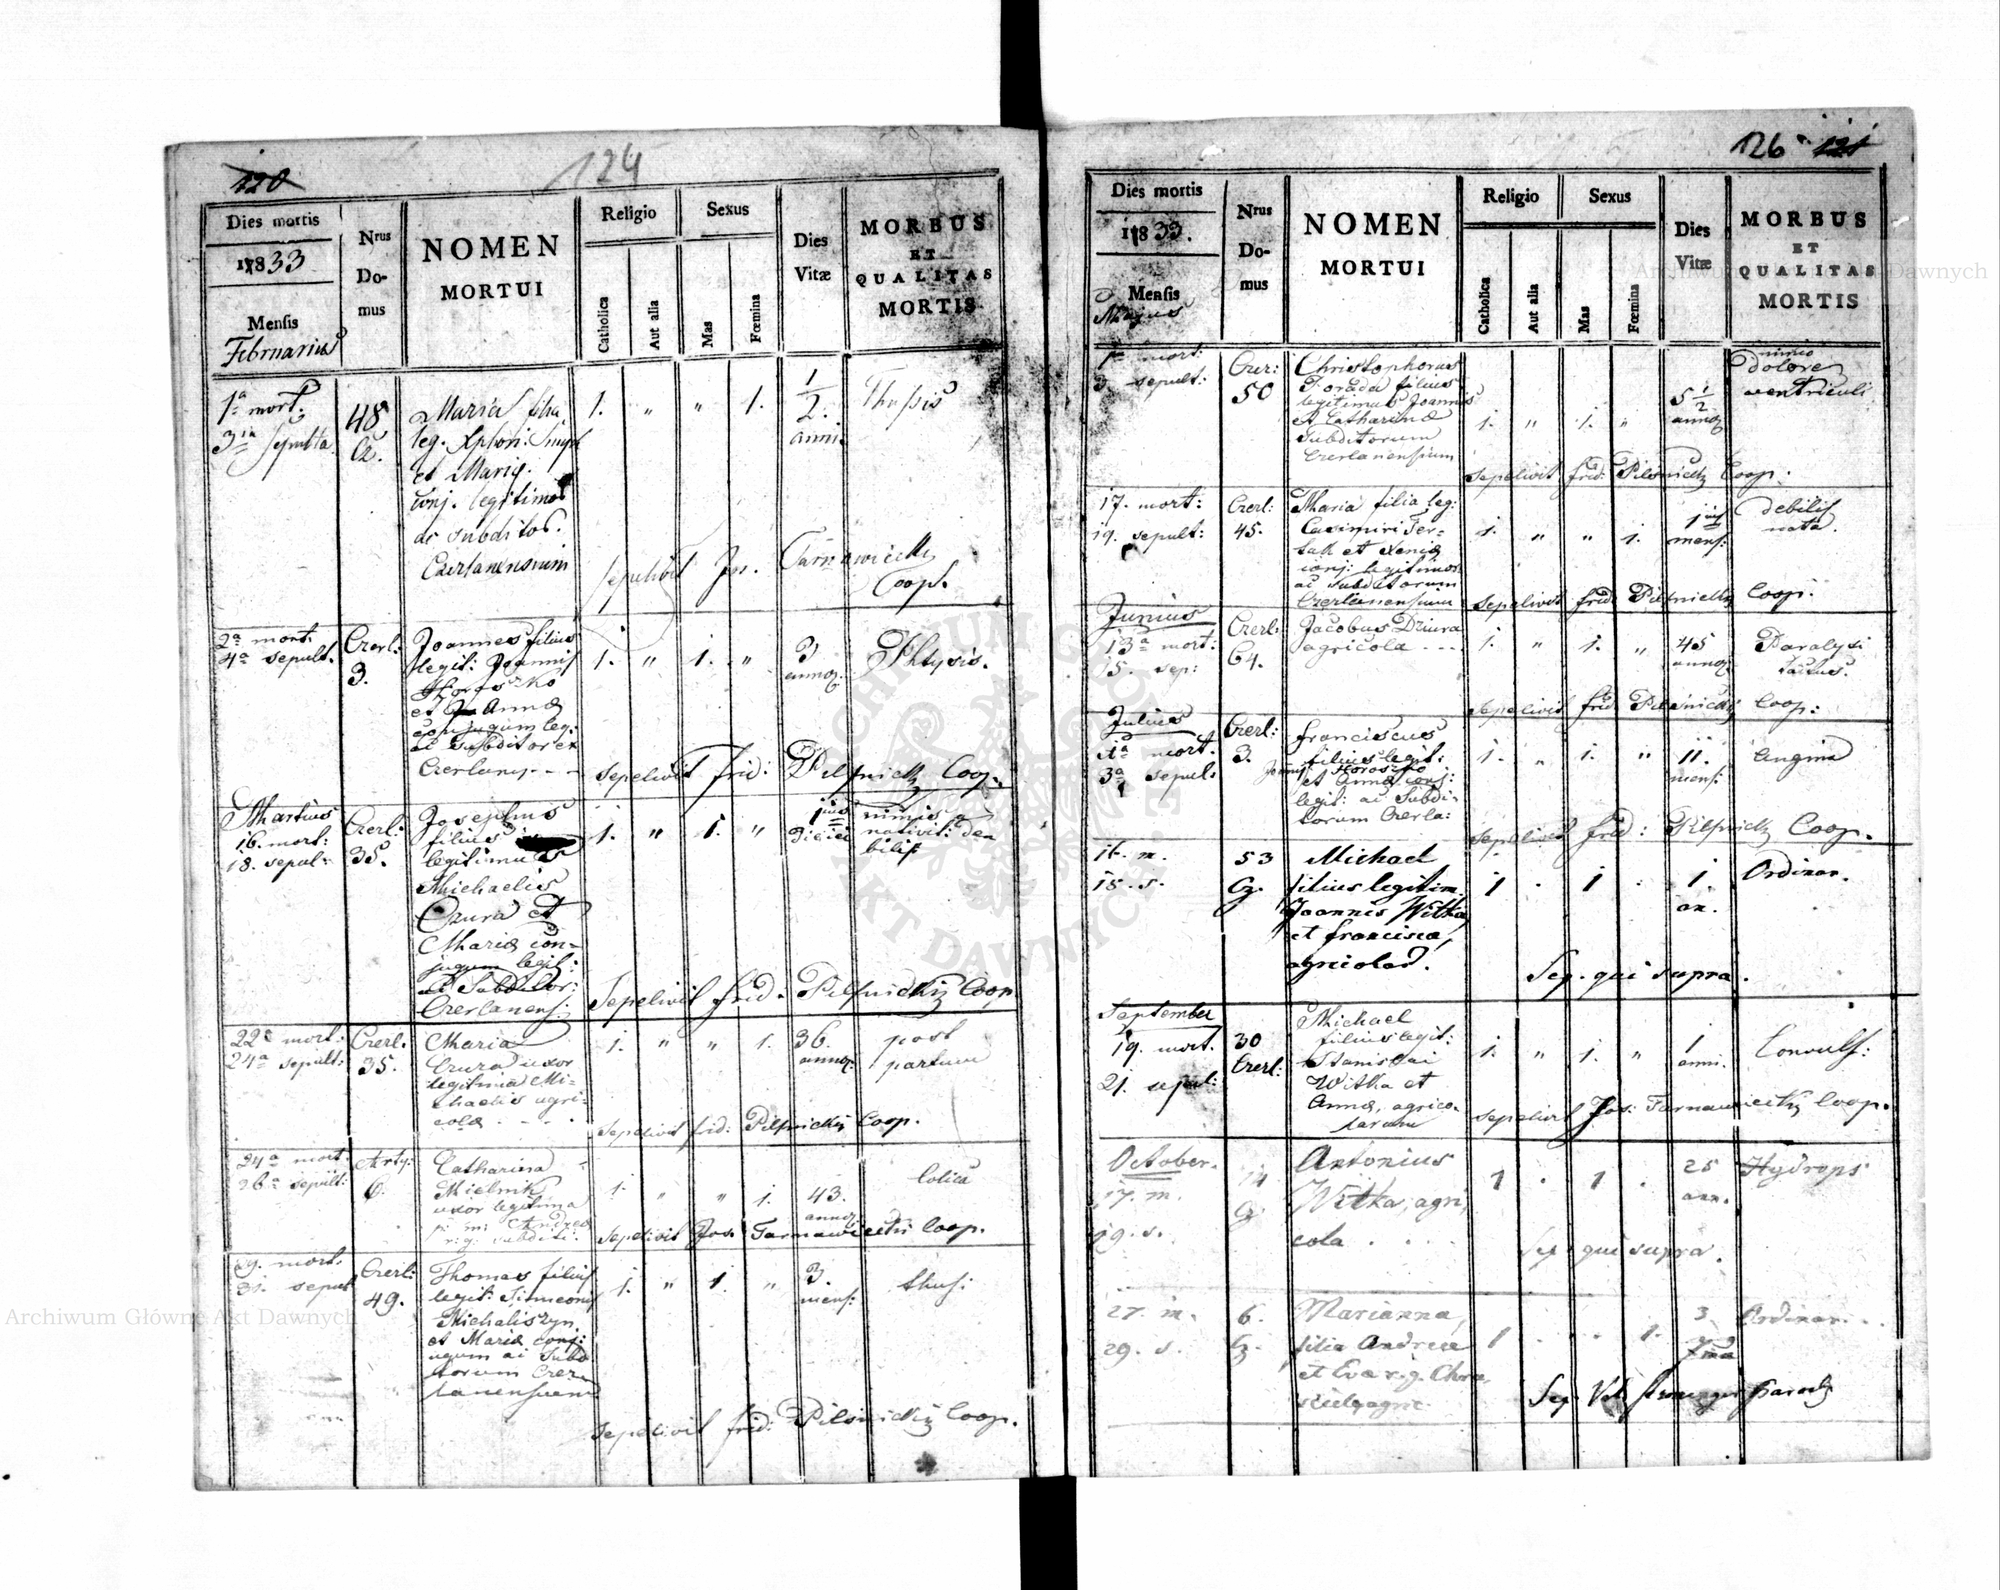 120
124
Dies mortis
1833
Mensis
Februarius
Nrus
Do-
mus
NOMEN
MORTUI
Religio
Catholica
Aut alia
Sexus
Mas
Fœmina
Dies
Vitæ
MORBUS
ET
QUALITAS
MORTIS
1a mort:
3tia sepulta
48
Cz.
Maria filia
leg. Xphori
et Mariæ
conj. legitimor
ac subditor.
Czerlanensium
1. " " 1.
1/2
anni
Thysis
Sepelivit Jos. Tarnawiecki
Coop.
2a mort.
4a sepult.
Czerl:
3.
Joannes filius
legit: Joannis
Horoszko
et Anna
conjugum leg:
ac subditor ex
Czerlany - - -
1. " 1. "
3
annor.
Phtysis.
Sepelivit frid: Pilsnicky Coop.
Martius
16. mort:
18. sepul:
Czerl:
35.
Josephus
filius
legitimus
Michaelis
Czura et
Mariæ con-
jugum legit:
ac Subditor:
Czerlanens:
1. " 1. "
1ius
Diei
nimis
nativit: de
bilis
Sepelivit frid. Pilsnicky Coop.
22a mort:
24a sepult:
Czerl:
35.
Maria
Czura uxor
legitima Mi-
chaelis agri-
colæ - - -
1. " " 1.
36.
annor.
post
partum
Sepelivit frid: Pilsnicky Coop.
24a mort.
26a sepult:
Arty:
6.
Catharina
Mielnik
uxor legitima
p: m: Andreæ
r: g: subditi.
1. " " 1.
43.
annor.
Colica
Sepelivit Jos: Tarnawiecki Coop.
29. mort.
31. sepul
Czerl:
49.
Thomas filius
legit: Simeonis
Michaliszyn
et Mariæ conj:
ugum ac Subd
itorum Czer
lanensium
1. " 1. "
3.
mens:
thus:
Sepelivit frid: Pilsnicky Coop.
126 121
Dies mortis
1833.
Mensis
Majus
Nrus
Do-
mus
NOMEN
MORTUI
Religio
Catholica
Aut alia
Sexus
Mas
Fœmina
Dies
Vitæ
MORBUS
ET
QUALITAS
MORTIS
1a mort:
3. sepult:
Czer:
50
Christophorus
Porada filius
legitimus Joannis
et Catharinæ
Subditorum
Czerlanensium
1. " 1. "
5 1/2
annor
nimio
dolore
ventriculi
Sepelivit frid: Pilsnicky Coop:
17. mort:
19. sepult:
Czerl:
45.
Maria filia leg:
Casimiri Ter-
lak et Xeniæ
conj: legitimor
ac subditorum
Czerlanensium
1. " " 1.
1ius
mens:
debilis
nata.
Sepelivit frid: Pilsnicky Coop:
Junius
13a mort:
15. sep:
Czerl:
64.
Jacobus Dziura
agricola - - -
1. " 1. "
45
annor
Paralysi
tactus.
Sepelivit frid: Pilsnicky Coop:
Julius
1a mort.
3a sepul:
Czerl:
3.
Franciscus
filius legit:
Joannis Horoszko
et Annæ conj:
legit: ac Subdi-
torum Czerla:
1. " 1. "
11.
mens:
Angina
Sepelivit frid: Pilsnicky Coop.
16. m.
18. s.
53
Cz.
Michael
filius legitim.
Joannis Witka,
et francisca,
agricolar.
1 . 1 .
1
an.
Ordinar.
Sep. qui supra.
September
19. mort.
21. sepul:
30
Czerl:
Michael
filius legit:
Stanislai
Witka et
Annæ, agrico-
larum
1. " 1. "
1
anni.
Convuls:
Sepelivit Jos: Tarnawiecky Coop.
October.
17. m.
19. s.
14
Cz.
Antonius
Witka, agri,
cola . . .
1 . 1 .
25
ann.
Hydrops
Sep. qui supra.
27. m.
29. s.
6.
Cz.
Marianna,
filia Andreæ
et Eva r. g.
1 . . 1.
3
Ordinar. . .
Sep.
ARCHIWUM GŁÓWNE AKT DAWNYCH
Archiwum Główne Akt Dawnych
Archiwum Główne Akt Dawnych